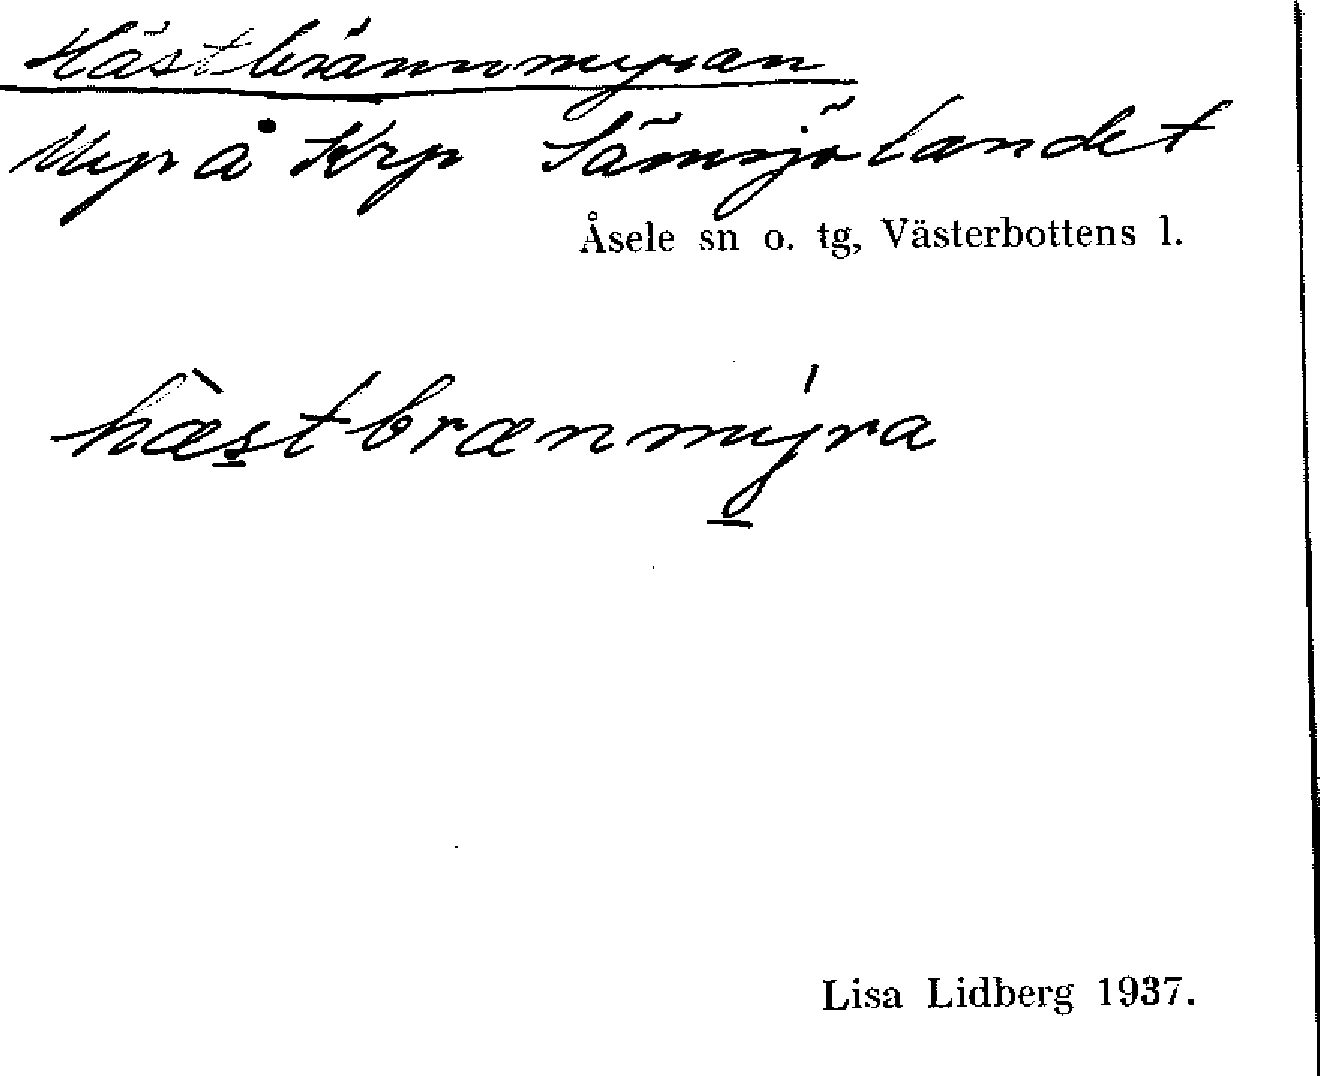 Hästbrännmyran
Myr å Krp Sämsjölandet
Åsele sn o. tg, Västerbottens l.
hæ̀stbrænmýra
Lisa Lidberg 1937.